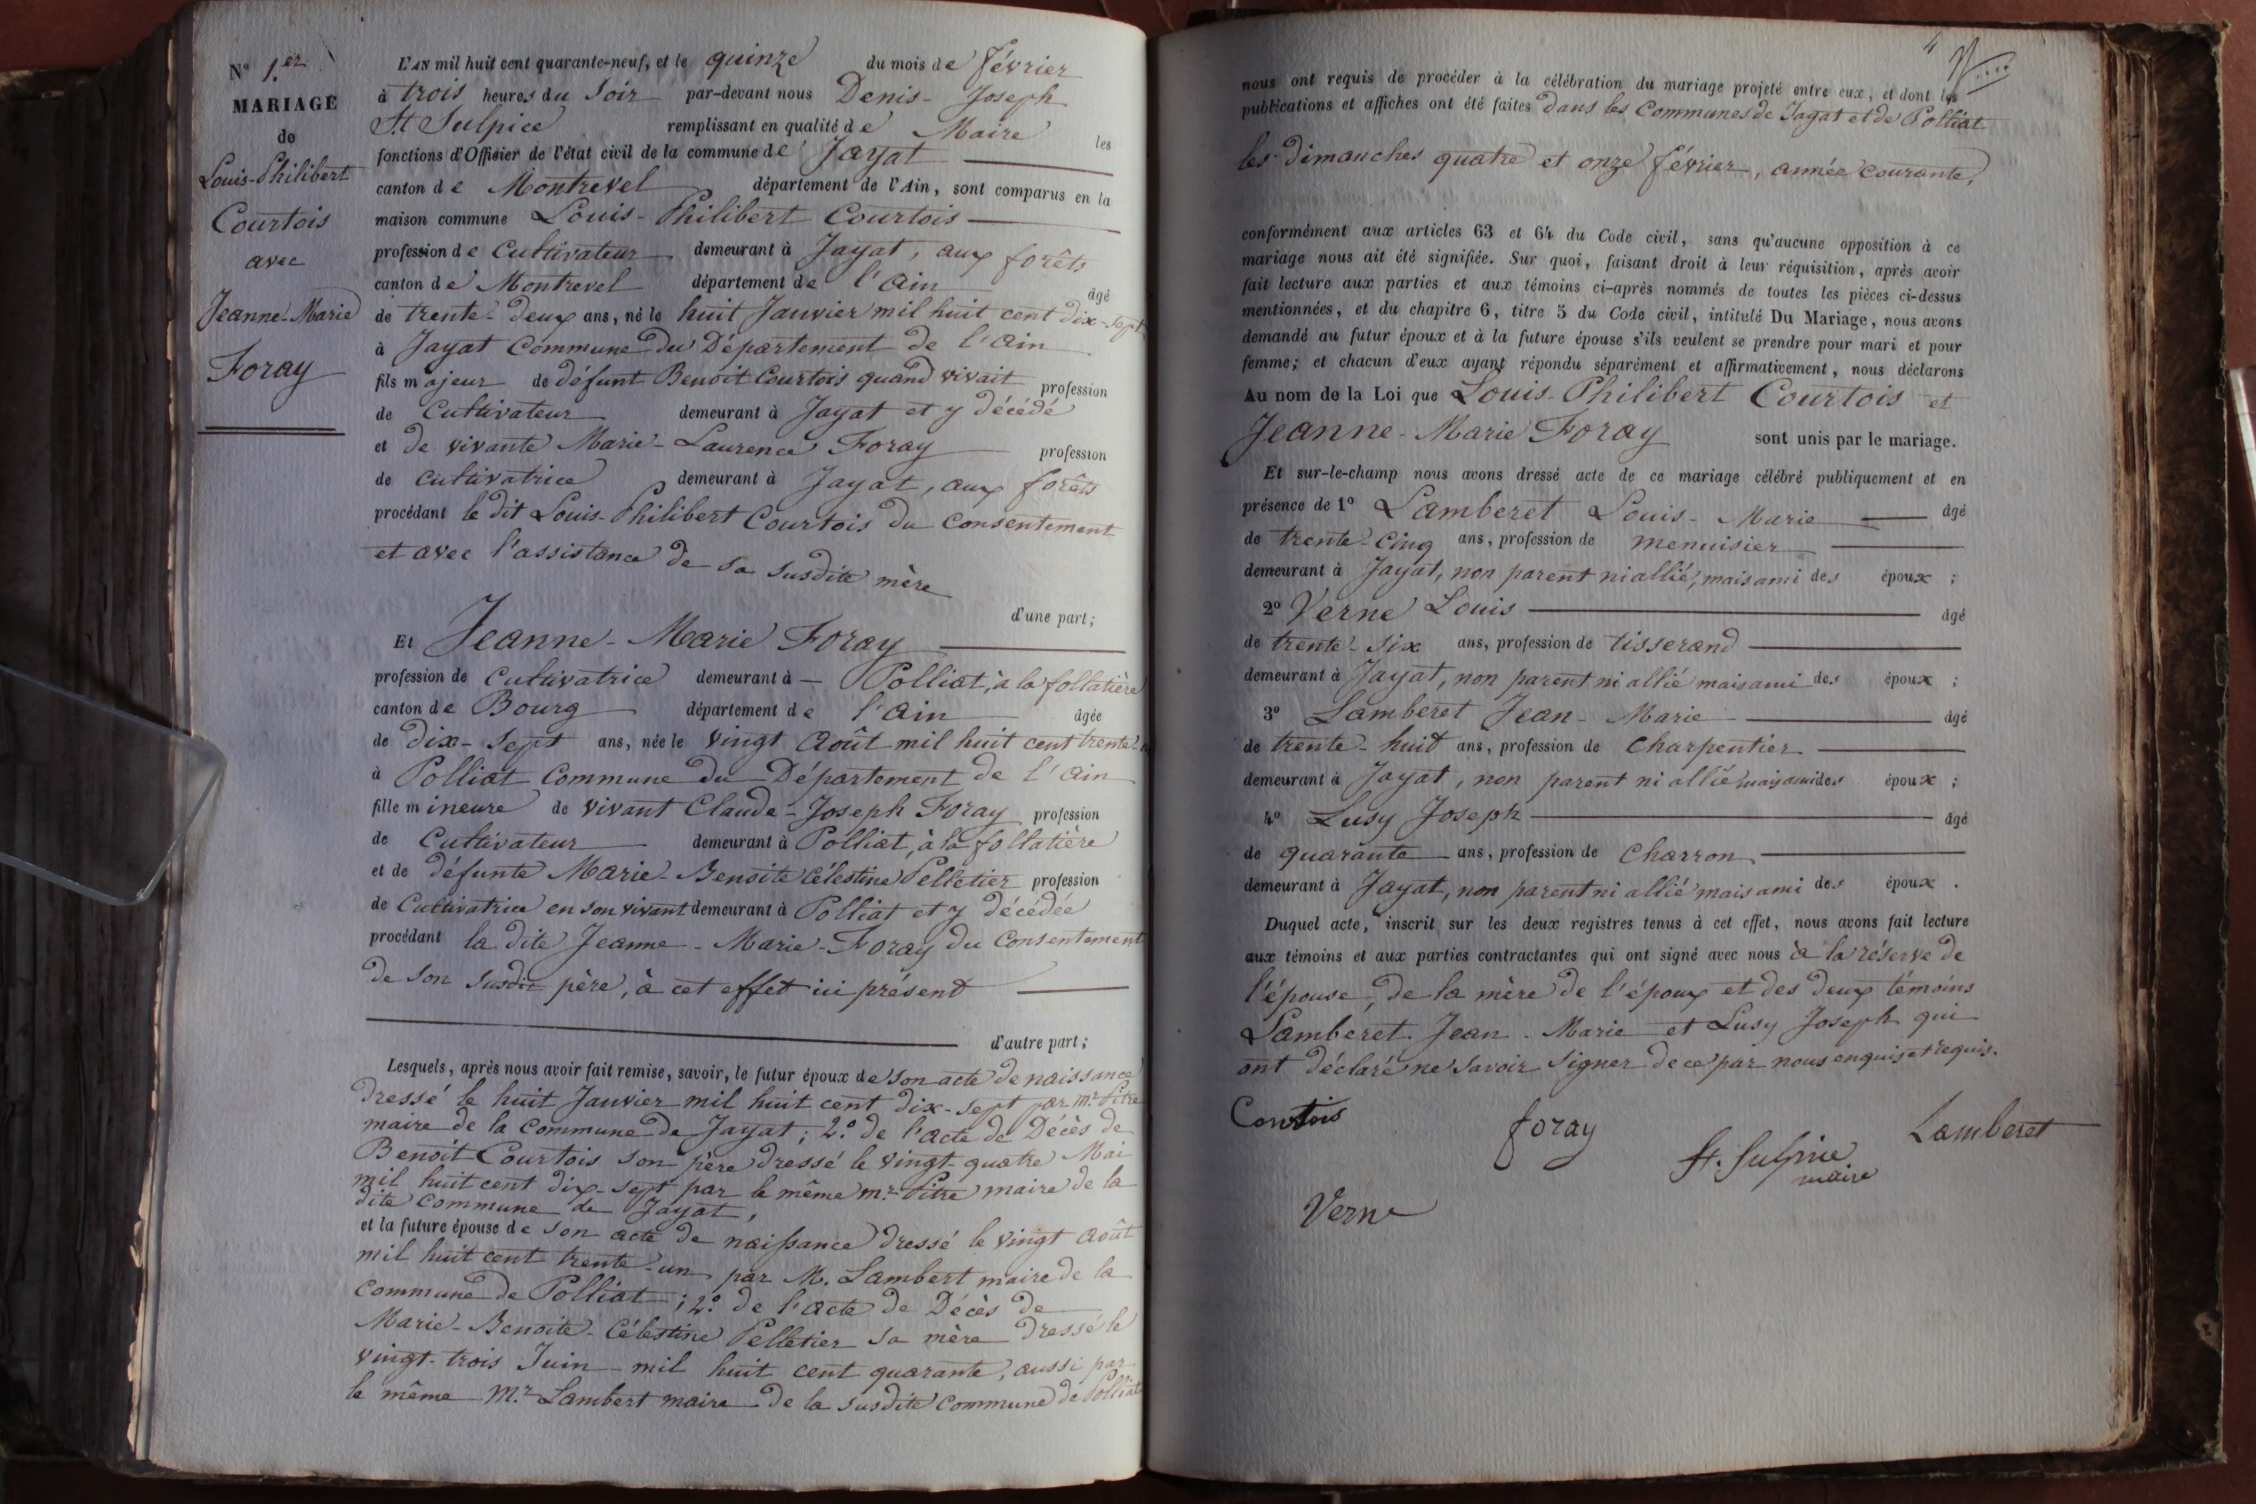 N° 1.er
MARIAGE
de
Louis-Philibert
Courtois
avec
Jeanne-Marie
Foray
L'AN mil huit cent quarante-neuf, et le quinze du mois de février
à trois heures du soir par-devant nous Denis-Joseph
St Sulpice remplissant en qualité de Maire les
fonctions d'Officier de l'état civil de la commune de Jayat
canton de Montrevel département de l'Ain, sont comparus en la
maison commune Louis-Philibert Courtois
profession de cultivateur demeurant à Jayat, aux forêts
canton de Montrevel département de l'Ain âgé
de trente-deux ans, né le huit Janvier mil huit cent dix-sept
à Jayat Commune du Département de l'Ain
fils majeur de défunt Benoit Courtois quand vivait profession
de Cultivateur demeurant à Jayat et y décédé
et de vivante Marie-Laurence Foray profession
de cultivatrice demeurant à Jayat, aux forêts
procédant le dit Louis-Philibert Courtois du consentement
et avec l'assistance de sa susdite mère
d'une part;
Et Jeanne-Marie Foray
profession de cultivatrice demeurant à Polliat, à la follatière
canton de Bourg département de l'Ain âgée
de dix-sept ans, née le vingt Août mil huit cent trente-
à Polliat Commune du Département de l'Ain
fille mineure de vivant Claude-Joseph Foray profession
de Cultivateur demeurant à Polliat, à la follatière
et de défunte Marie-Benoite Célestine Pelletier profession
de Cultivatrice en son vivant demeurant à Polliat et y décédée
procédant la dite Jeanne-Marie-Foray du consentement
de son susdit père, à cet effet ici présent
d'autre part;
Lesquels, après nous avoir fait remise, savoir, le futur époux de son acte de naissance
dressé le huit Janvier mil huit cent dix-sept par Mr Pitre
maire de la commune de Jayat; 2.° de l'acte de Décès de
Benoit Courtois son père dressé le vingt-quatre Mai
mil huit cent dix-sept par le même mr. Pitre maire de la
dite commune de Jayat,
et la future épouse de son acte de naissance dressé le vingt Août
mil huit cent trente-un par M. Lambert maire de la
commune de Polliat; 2.° de l'acte de Décès de
Marie-Benoite-Célestine Pelletier sa mère dressé le
vingt-trois Juin mil huit cent quarante, aussi par
le même Mr. Lambert maire de la susdite commune de Polliat
4
nous ont requis de procéder à la célébration du mariage projeté entre eux, et dont les
publications et affiches ont été faites dans les Communes de Jayat et de Polliat
les dimanches quatre et onze février, année courante,
conformément aux articles 63 et 64 du Code civil, sans qu'aucune opposition à ce
mariage nous ait été signifiée. Sur quoi, faisant droit à leur réquisition, après avoir
fait lecture aux parties et aux témoins ci-après nommés de toutes les pièces ci-dessus
mentionnées, et du chapitre 6, titre 5 du Code civil, intitulé Du Mariage, nous avons
demandé au futur époux et à la future épouse s'ils veulent se prendre pour mari et pour
femme; et chacun d'eux ayant répondu séparément et affirmativement, nous déclarons
Au nom de la Loi que Louis-Philibert Courtois et
Jeanne-Marie Foray sont unis par le mariage.
Et sur-le-champ nous avons dressé acte de ce mariage célébré publiquement et en
présence de 1° Lamberet Louis-Marie âgé
de trente-cinq ans, profession de menuisier
demeurant à Jayat, non parent ni allié, mais ami des époux;
2° Verne Louis âgé
de trente-six ans, profession de tisserand
demeurant à Jayat, non parent ni allié mais ami des époux;
3° Lamberet Jean-Marie âgé
de trente-huit ans, profession de Charpentier
demeurant à Jayat, non parent ni allié mais ami des époux;
4° Lusy Joseph âgé
de quarante ans, profession de Charron
demeurant à Jayat, non parent ni allié mais ami des époux.
Duquel acte, inscrit sur les deux registres tenus à cet effet, nous avons fait lecture
aux témoins et aux parties contractantes qui ont signé avec nous à la réserve de
l'épouse, de la mère de l'époux et des deux témoins
Lamberet Jean-Marie et Lusy Joseph qui
ont déclaré ne savoir signer de ce par nous enquis et requis.
Courtois foray St. Sulpice maire Lamberet
Verne